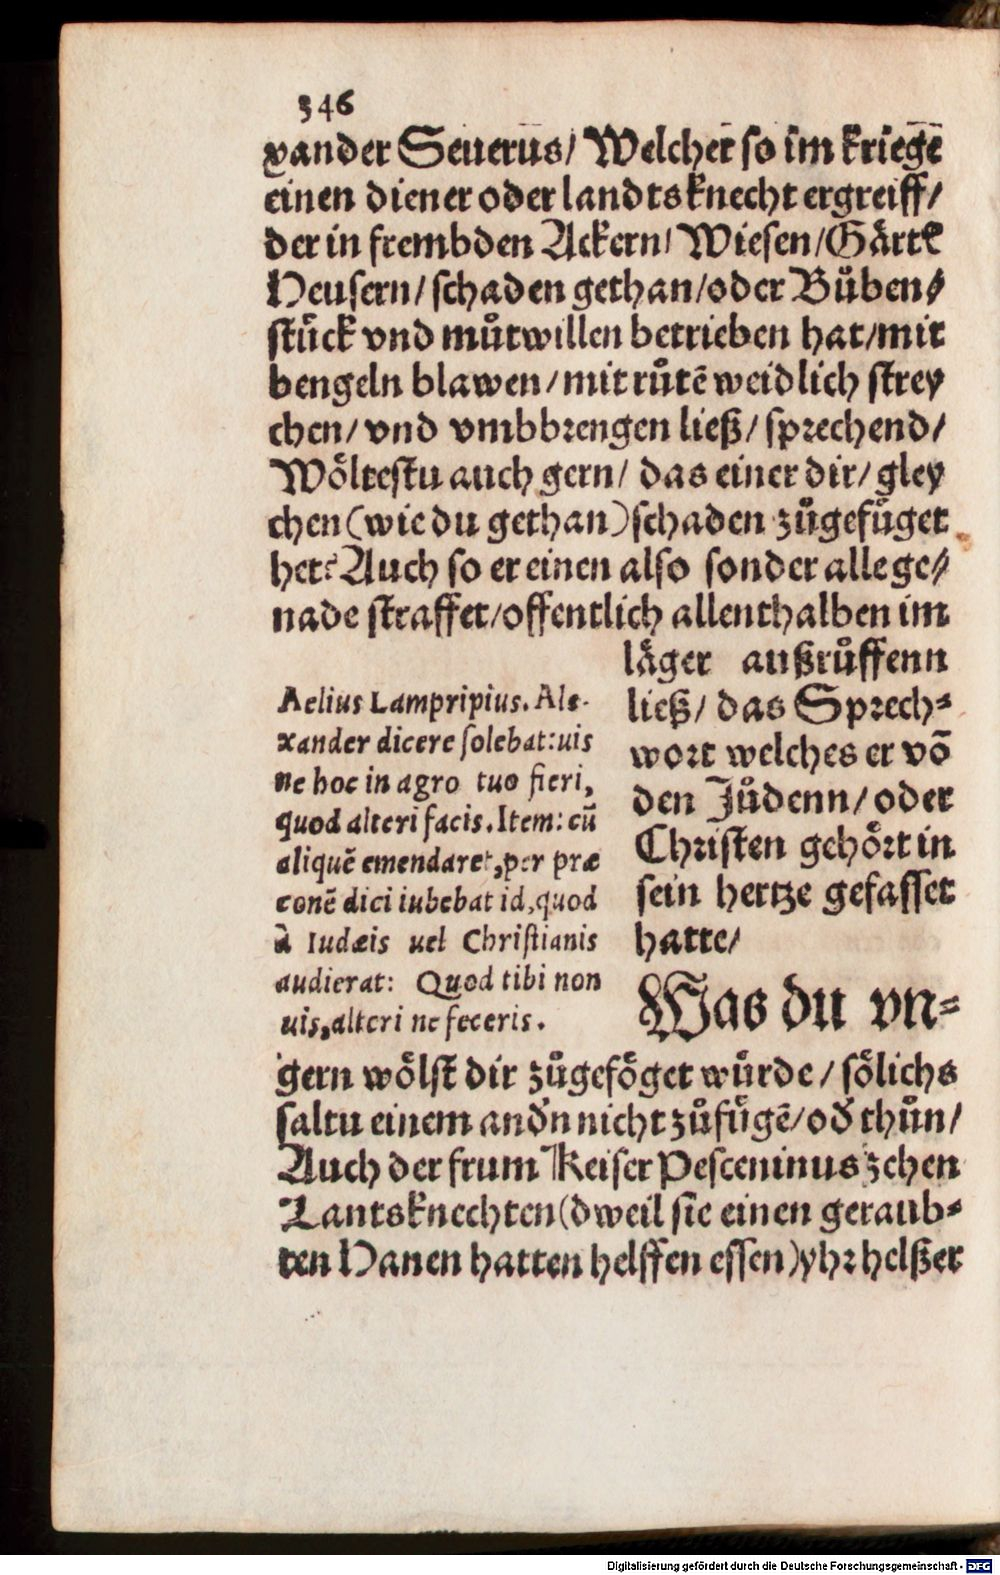 346
xander Seuerus/ Welcher so im kriegē
einen diener oder landtsknecht ergreiff/
der in frembden Ackern/ Wiesen/ Gärtē
Heusern/ schaden gethan/ oder Bůben⸗
stück vnd můtwillen betrieben hat/ mit
bengeln blawen/ mit růtē weidlich strey
chen/ vnd vmbbrengen ließ/ sprechend/
Wöltestu auch gern/ das einer dir/ gley
chen (wie du gethan) schaden zůgefüget
het? Auch so er einen also sonder alle ge⸗
nade straffet/ offentlich allenthalben im
läger außrůffenn
ließ/ das Sprech⸗
wort welches er vō
den Jůdenn/ oder
Christen gehört in
sein hertze gefasset
hatte/
Was du vn⸗
Aelius Lampripius. Ale-
xander dicere solebat: uis
ne hoc in agro tuo fieri,
quod alteri facis. Item: cū
aliquē emendaret, per præ
conē dici iubebat id, quod
à Iudæis uel Christianis
audierat: Quod tibi non
uis, alteri ne feceris.
gern wölst dir zůgeföget würde/ sölichs
saltu einem andn̄ nicht zůfügē/ od̄ thůn/
Auch der frum Keiser Pesceninus zehen
Lantsknechten (dweil sie einen geraub⸗
ten Hanen hatten helffen essen) yhr helßer
Digitalisierung gefördert durch die Deutsche Forschungsgemeinschaft - DFG